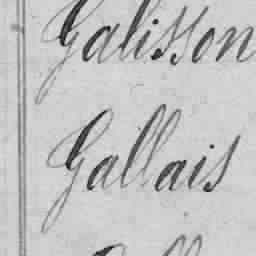 Galisson
Gallais